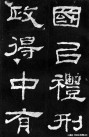 國㠯禮刑
政得中有